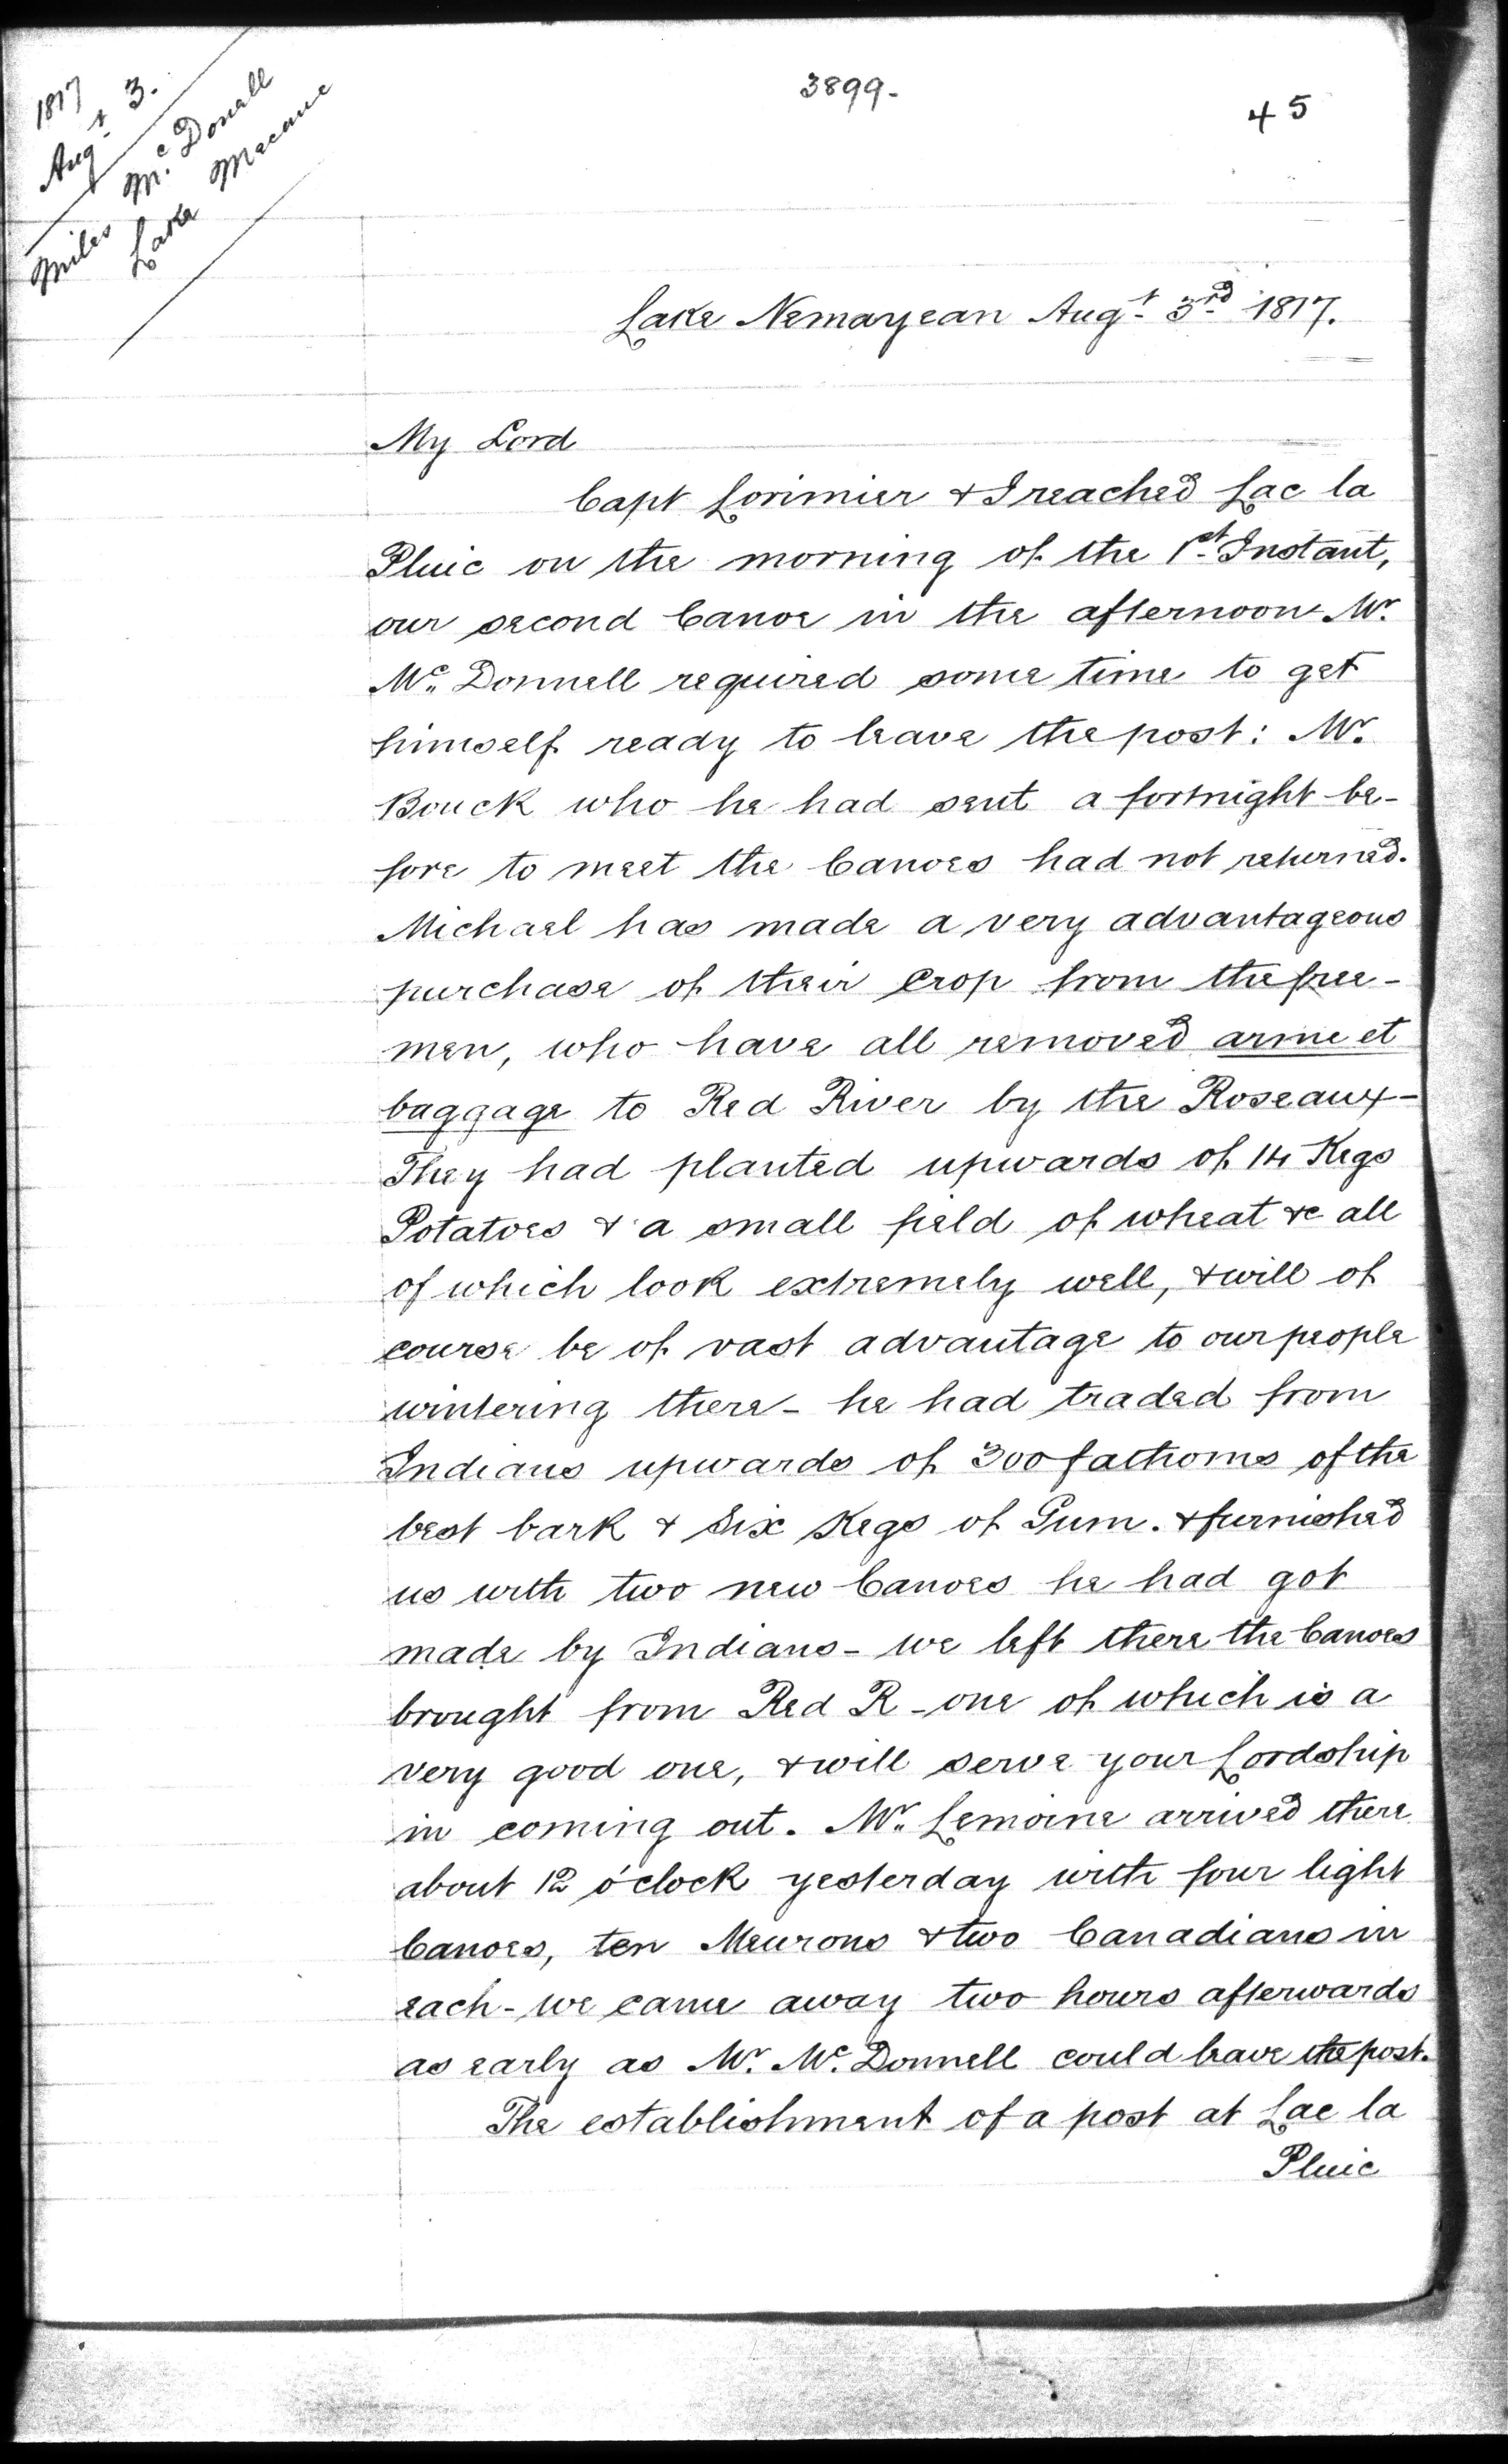 1817
Augt 3.
Miles Mc. Donell
Lake Macane
3899-
45
Lake Nemayean Augt 3rd 1817.
My Lord
Capt Lorimier & I reached Lac la
Pluie on the morning of the 1st Instant,
our second Canoe in the afternoon Mr.
Mc. Donnell required some time to get
himself ready to leave the post: Mr.
Bouck who he had sent a fortnight be-
fore to meet the Canoes had not returned.
Michael has made a very advantageous
purchase of their Crop from the free-
men, who have all removed arme et
baggage to Red River by the Roseaux-
They had planted upwards of 14 Kegs
Potatoes & a small field of wheat &c all
of which look extremely well, & will of
course be of vast advantage to our people
wintering there - he had traded from
Indians upwards of 300 fathoms of the
best bark & Six Kegs of Gum. & furnished
us with two new Canoes he had got
made by Indians - we left there the Canoes
brought from Red R - one of which is a
very good one, & will serve your Lordship
in coming out. Mr. Lemoine arrived there
about 12 o'clock yesterday with four light
Canoes, ten Meurons & two Canadians in
each - we came away two hours afterwards
as early as Mr. Mc. Donnell could leave the post.
The establishment of a post at Lac la
Pluie